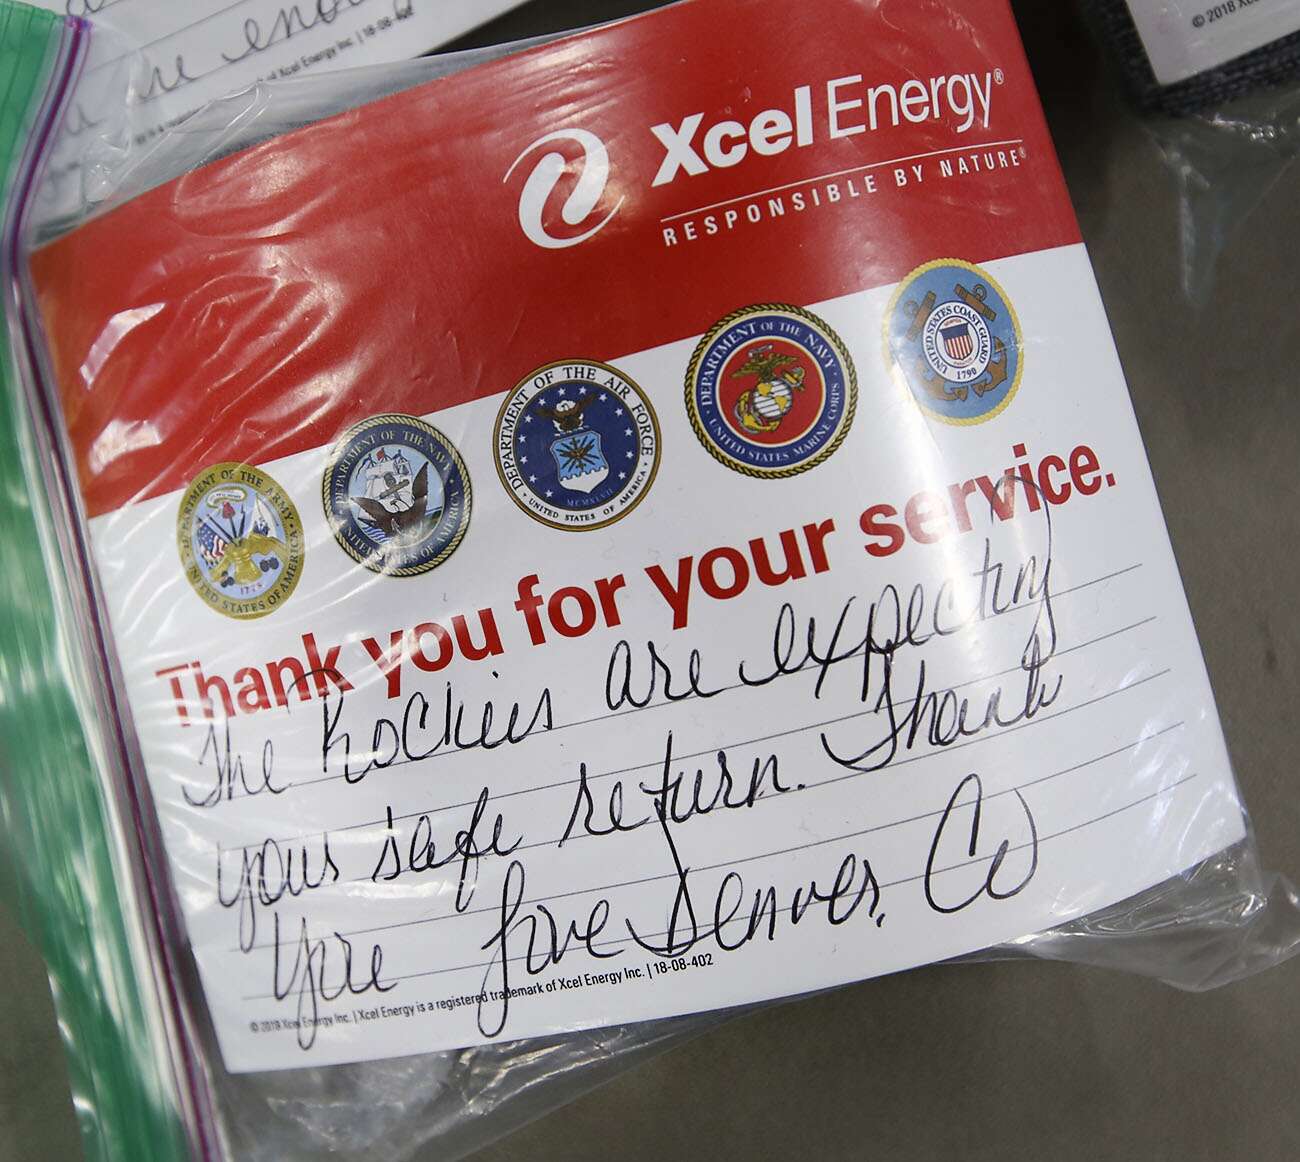 re enou
of Xcel Energy Inc. | 18-08-402
© 2018 Xce
Xcel Energy®
RESPONSIBLE BY NATURE®
DEPARTMENT OF THE ARMY
UNITED STATES OF AMERICA
1775
DEPARTMENT OF THE NAVY
UNITED STATES OF AMERICA
DEPARTMENT OF THE AIR FORCE
MCMXLVII
UNITED STATES OF AMERICA
DEPARTMENT OF THE NAVY
UNITED STATES MARINE CORPS
UNITED STATES COAST GUARD
1790
Thank you for your service.
The Rockies are expecting
your safe return. Thank
you from Denver, CO
© 2018 Xcel Energy Inc. | Xcel Energy is a registered trademark of Xcel Energy Inc. | 18-08-402